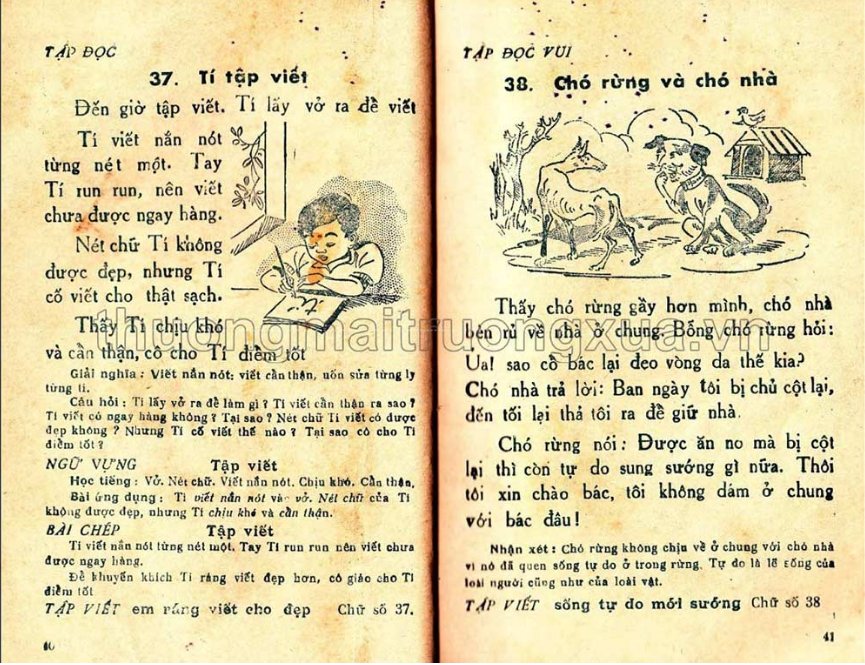 TẬP ĐỌC
37. Tí tập viết
Đến giờ tập viết. Tí lấy vở ra để viết
Tí viết nắn nót
từng nét một. Tay
Tí run run, nên viết
chưa được ngay hàng.
Nét chữ Tí không
được đẹp, nhưng Tí
cố viết cho thật sạch.
Thấy Tí chịu khó
và cẩn thận, cô cho Tí điểm tốt
Giải nghĩa : Viết nắn nót: viết cẩn thận, uốn sửa từng ly
từng tí.
Câu hỏi : Tí lấy vở ra để làm gì ? Tí viết cẩn thận ra sao ?
Tí viết có ngay hàng không ? Tại sao ? Nét chữ Tí viết có được
đẹp không ? Nhưng Tí cố viết thế nào ? Tại sao cô cho Tí
điểm tốt ?
NGỮ VỰNG Tập viết
Học tiếng : Vở. Nét chữ. Viết nắn nót. Chịu khó. Cẩn thận.
Bài ứng dụng : Tí viết nắn nót vào vở. Nét chữ của Tí
không được đẹp, nhưng Tí chịu khó và cẩn thận.
BÀI CHÉP Tập viết
Tí viết nắn nót từng nét một. Tay Tí run run nên viết chưa
được ngay hàng.
Để khuyến khích Tí ráng viết đẹp hơn, cô giáo cho Tí
điểm tốt
TẬP VIẾT em ráng viết cho đẹp Chữ số 37.
40
TẬP ĐỌC VUI
38. Chó rừng và chó nhà
Thấy chó rừng gầy hơn mình, chó nhà
bèn rủ về nhà ở chung. Bỗng chó rừng hỏi:
Ua! sao cổ bác lại đeo vòng da thế kia?
Chó nhà trả lời: Ban ngày tôi bị chủ cột lại,
đến tối lại thả tôi ra để giữ nhà.
Chó rừng nói: Được ăn no mà bị cột
lại thì còn tự do sung sướng gì nữa. Thôi
tôi xin chào bác, tôi không dám ở chung
với bác đâu!
Nhận xét : Chó rừng không chịu về ở chung với chó nhà
vì nó đã quen sống tự do ở trong rừng. Tự do là lẽ sống của
loài người cũng như của loài vật.
TẬP VIẾT sống tự do mới sướng Chữ số 38
41
thuongmaitruongxua.vn